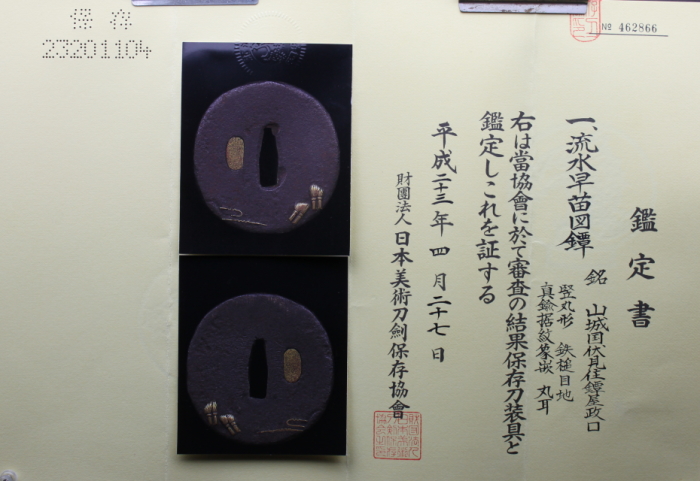 保存
23201104
No 462866
鑑定書
一、流水早苗図鐔 銘 山城国伏見住鐔屋政口
竪丸形 鉄槌目地
真鍮据紋象嵌 丸耳
右は當協會に於て審査の結果保存刀装具と
鑑定しこれを証する
平成二十三年四月二十七日
財團法人 日本美術刀劍保存協會